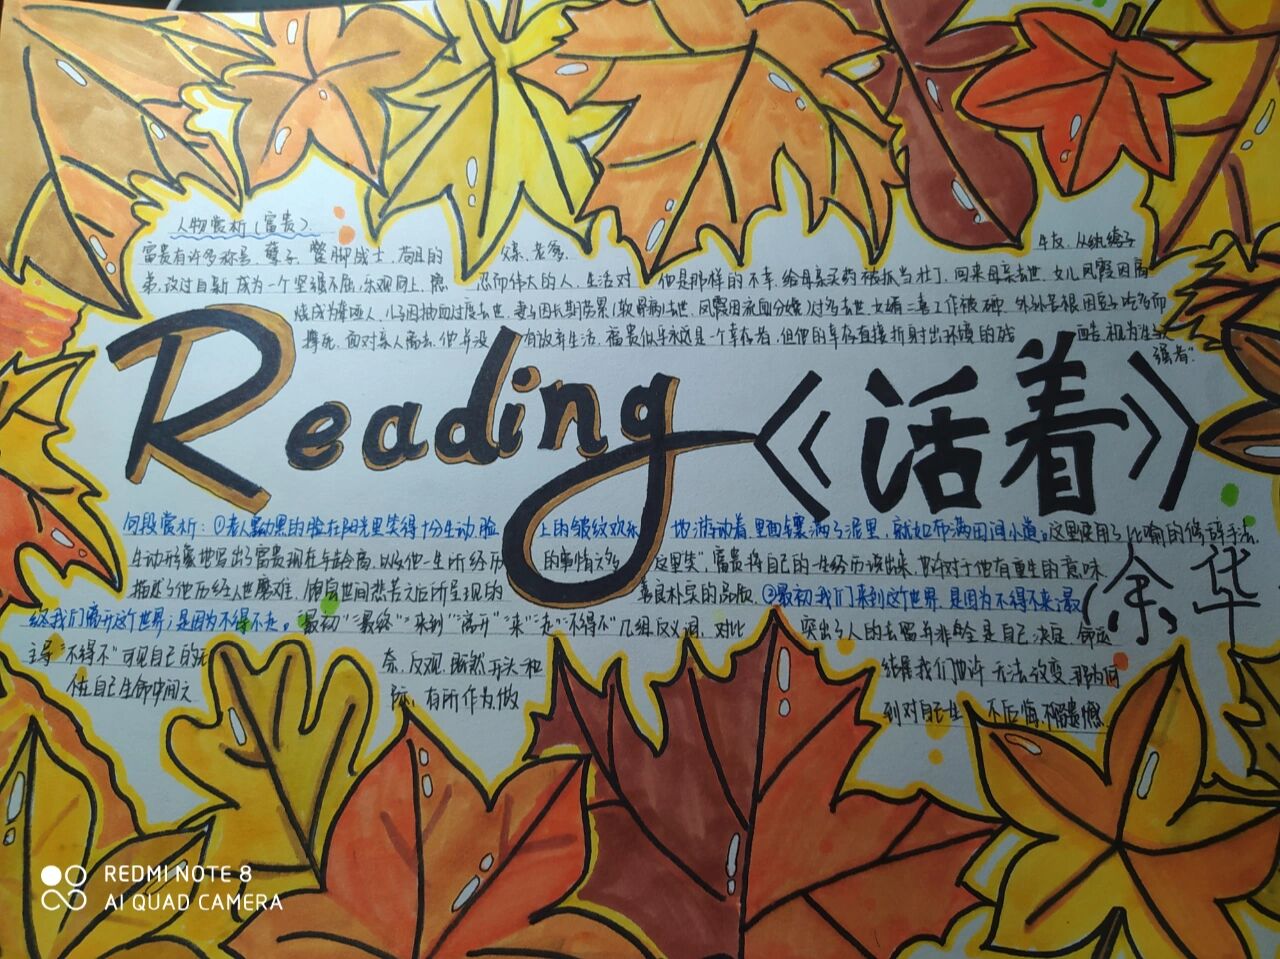 人物赏析(富贵).
富贵有许多称号、孽子、蹩脚战士、苟且的 父亲、老爹. 牛友. 从纨绔子
弟,改过自新 成为一个坚强不屈,乐观向上, 忍而伟大的人. 生活对 他是那样的不幸. 给母亲买药 被抓当壮丁. 回来母亲去世. 女儿凤霞因高
烧成为聋哑人. 儿子因抽血过度去世. 妻子因长期劳累(软骨病)去世. 凤霞因流血(分娩)过多去世. 女婿二喜工作被砸. 外孙苦根因豆子吃多而
撑死. 面对亲人离去. 他并没 有放弃生活. 福贵似乎永远是一个幸存者. 但他的幸存直接折射出环境的残 酷. 视为生活
强者"
Reading《活着》
句段赏析: ①老人黝黑的脸在阳光里笑得十分生动. 脸 上的皱纹欢乐 地游动着. 里面镶满了泥土. 就如布满田间小道。这里使用了比喻的修辞手法.
生动形象地写出了富贵现在年龄高. 以及他一生所经历 的事情之多. "这里笑". 富贵将自己的一生经历说出来. 也许对于他有重生的意味
描述了他历经人世磨难. 饱尝世间悲苦之后所呈现的 善良朴实的品质. ②最初我们来到这个世界. 是因为不得不来;最
终我们离开这个世界;是因为不得不走。"最初""最终""来到""离开""来""走""不得不"几组反义词. 对比 突出了人的去留并非全是自己决定. 命运
"不得不"可见自己的无 奈. 反观. 既然开头和 结尾我们也许 无法改变. 那为何
在自己生命中间 际. 有所作为. 做 到对自己 不后悔. 不遗憾.
余华
REDMI NOTE 8
AI QUAD CAMERA